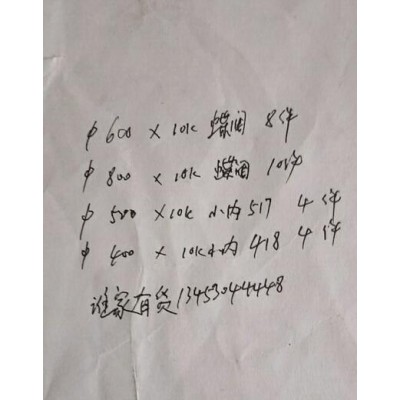 φ600 × 10K 蝶阀 8件
φ800 × 10K 蝶阀 10件
φ500 × 10K 小内 517 4件
φ400 × 10K 小内 418 4件
谁家有货 13453044448